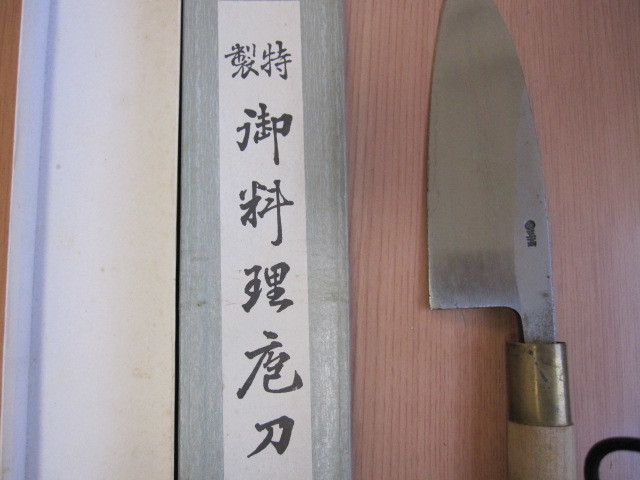 特製
御料理庖刀